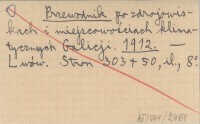 Przewodnik po zdrojowis-
kach i miejscowościach klima-
tycznych Galicji. 1912. —
Lwów. Stron 303 + 50, il., 8°.